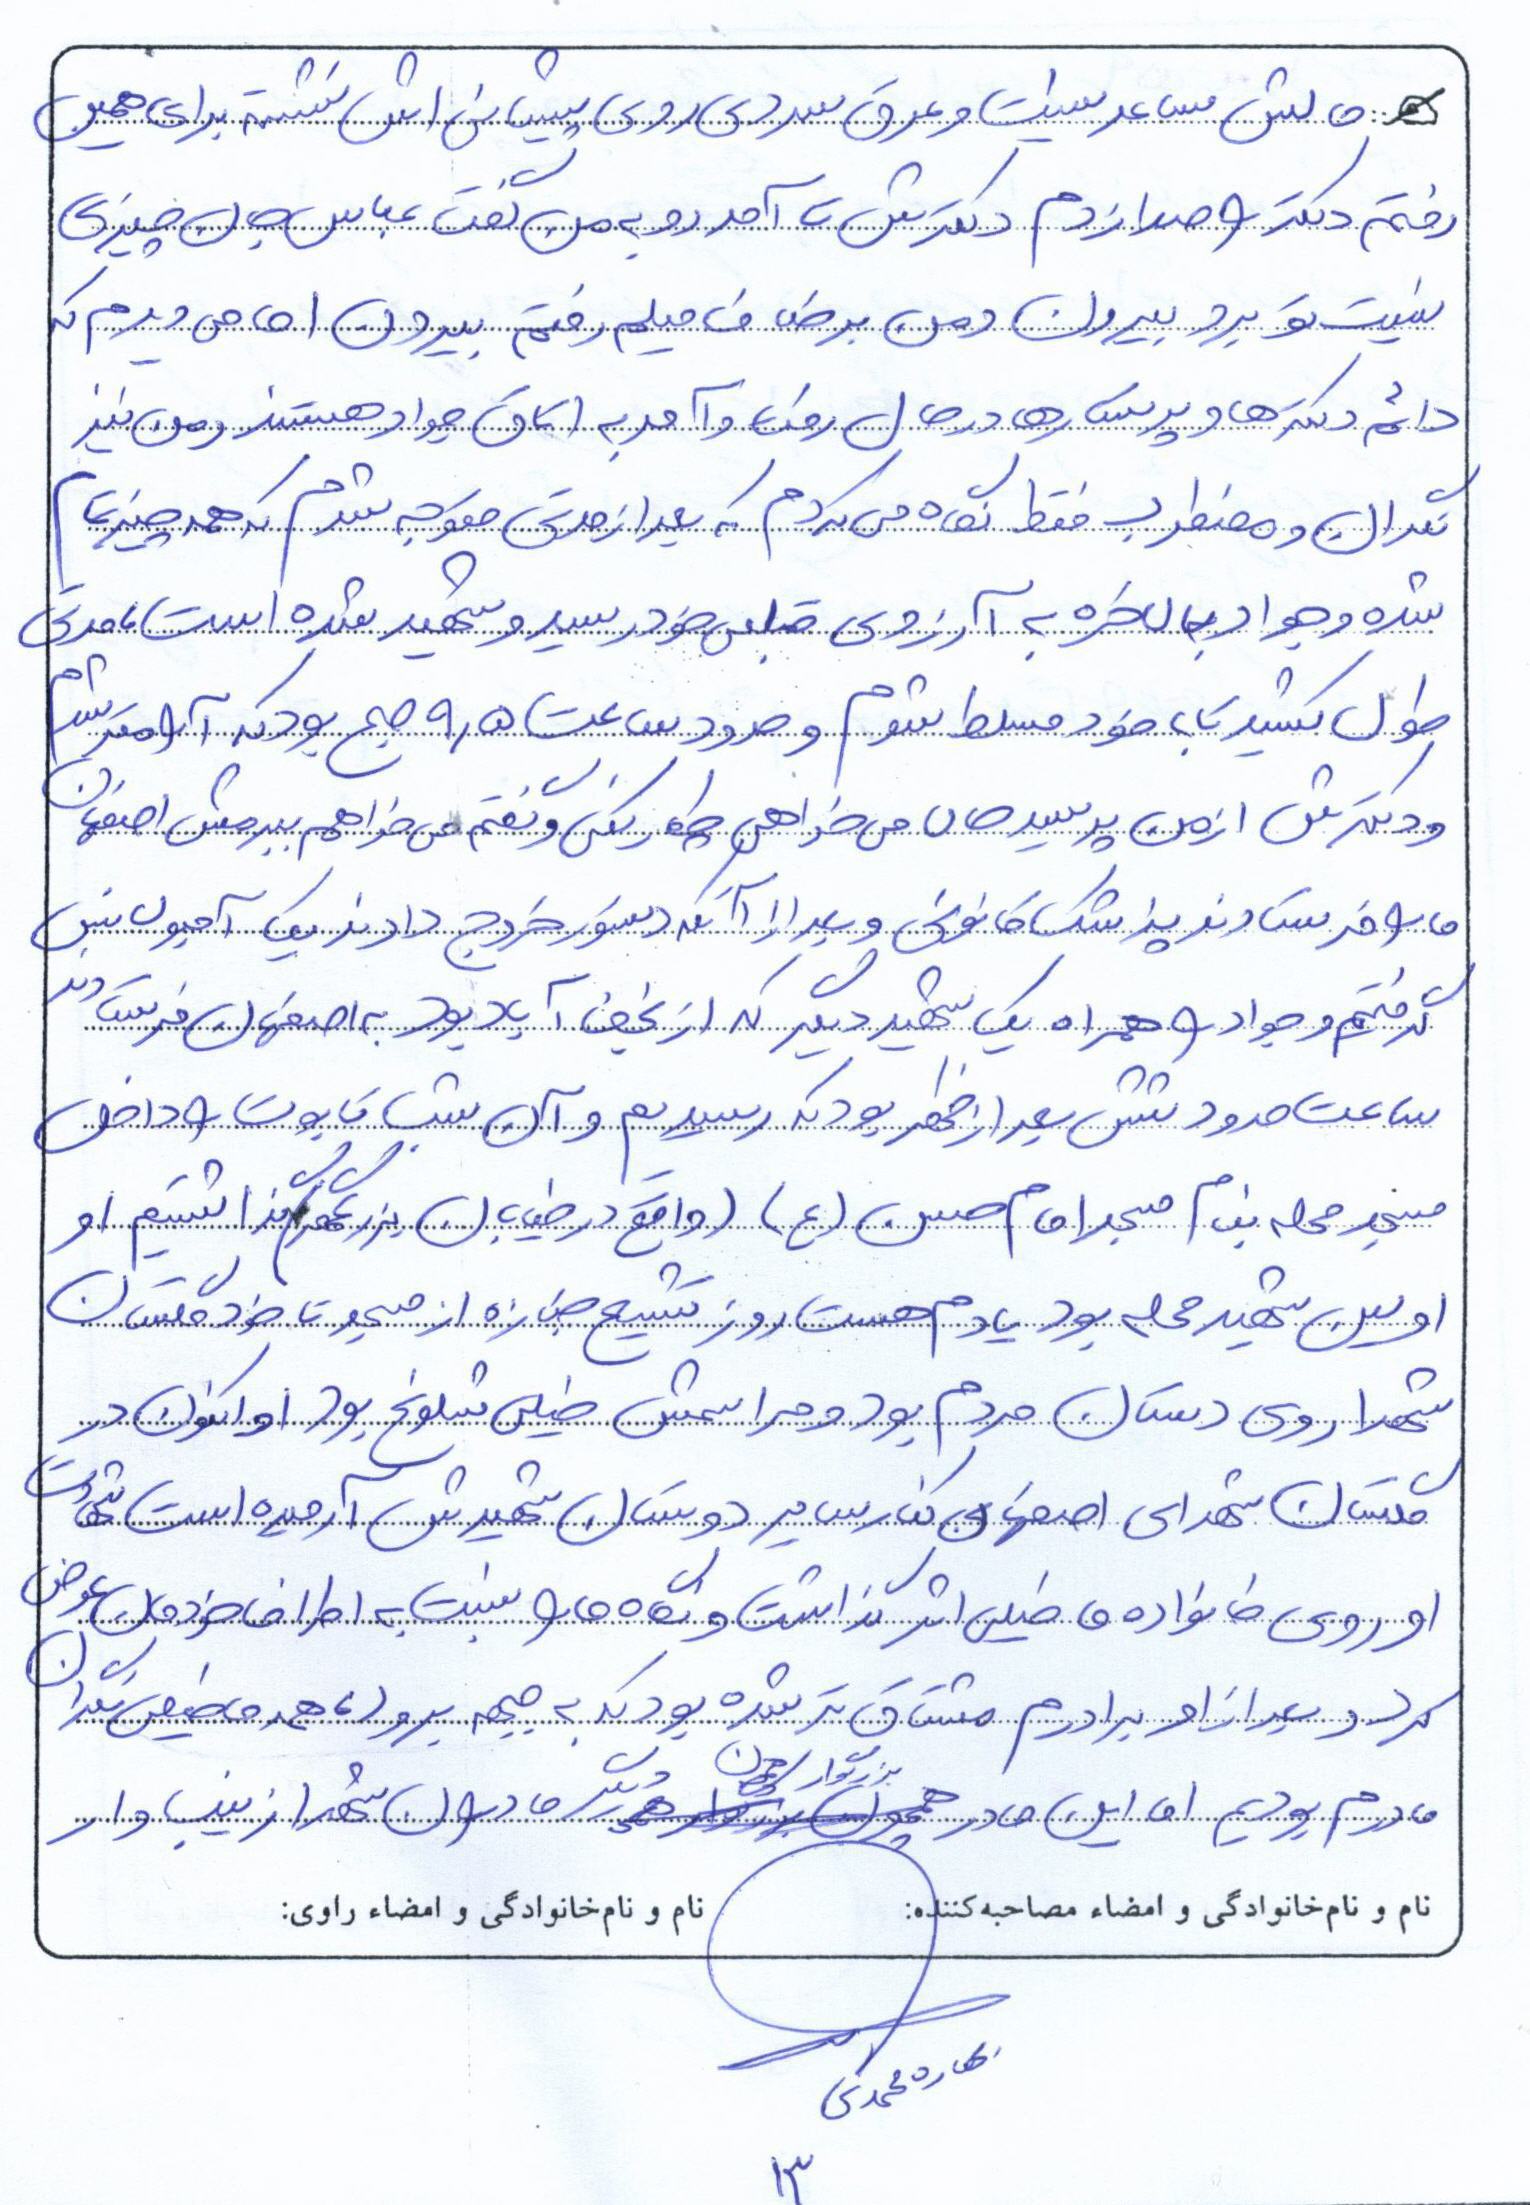 حالش مساعد نیست و عرق سردی روی پیشانی اش نشسته برای همین
رفتم دکتر را صدا زدم دکترش تا آمد رو به من گفت عباس جان چیزی
نیست تو برو بیرون ومن برخلاف میلم رفتم بیرون اما می دیدم که
دائم دکترها و پرستارها در حال رفت و آمد به اتاق جواد هستند ومن نیز
نگران و مضطرب فقط نگاه می کردم که بعد از مدتی متوجه شدم که همه چیز تمام
شده و جواد بالاخره به آرزوی قلبی خود رسید و شهید شده است تا مدتی
طول کشید تا به خود مسلط شوم و حدود ساعت ۹٫۵ صبح بود که آرام تر شدم
و دکترش از من پرسید حالا می خواهی چه کار بکنی و گفتم می خواهم ببرمش اصفهان
ما را فرستادند پزشک قانونی و بعد از آنکه دستور خروج دادند یک آمبولانس
گرفتیم و جواد را همراه یک شهید دیگر که از نجف آباد بود به اصفهان فرستادند
ساعت حدود شش بعد از ظهر بود که رسیدیم و آن شب تابوت را داخل
مسجد محله بنام مسجد امام حسن (ع) (واقع در خیابان بزرگمهر) گذاشتیم او
اولین شهید محله بود یادم هست روز تشییع جنازه از مسجد تا خود گلستان
شهدا روی دستان مردم بود و مراسمش خیلی شلوغ بود او اکنون در
گلستان شهدای اصفهان کنار سایر دوستان شهیدش آرمیده است شهادت
او روی خانواده ما خیلی اثر گذاشت و نگاه ما را نسبت به اطراف خودمان عوض
کرد و بعد از او برادرم مشتاق تر شده بود که به جبهه برود اما همه ما خیلی نگران
مادرم بودیم اما این مادر بزرگوار همچون دیگر مادران شهدا زینب وار
نام و نام‌خانوادگی و امضاء مصاحبه‌کننده:
نام و نام‌خانوادگی و امضاء راوی:
بهاره محمدی
۱۳